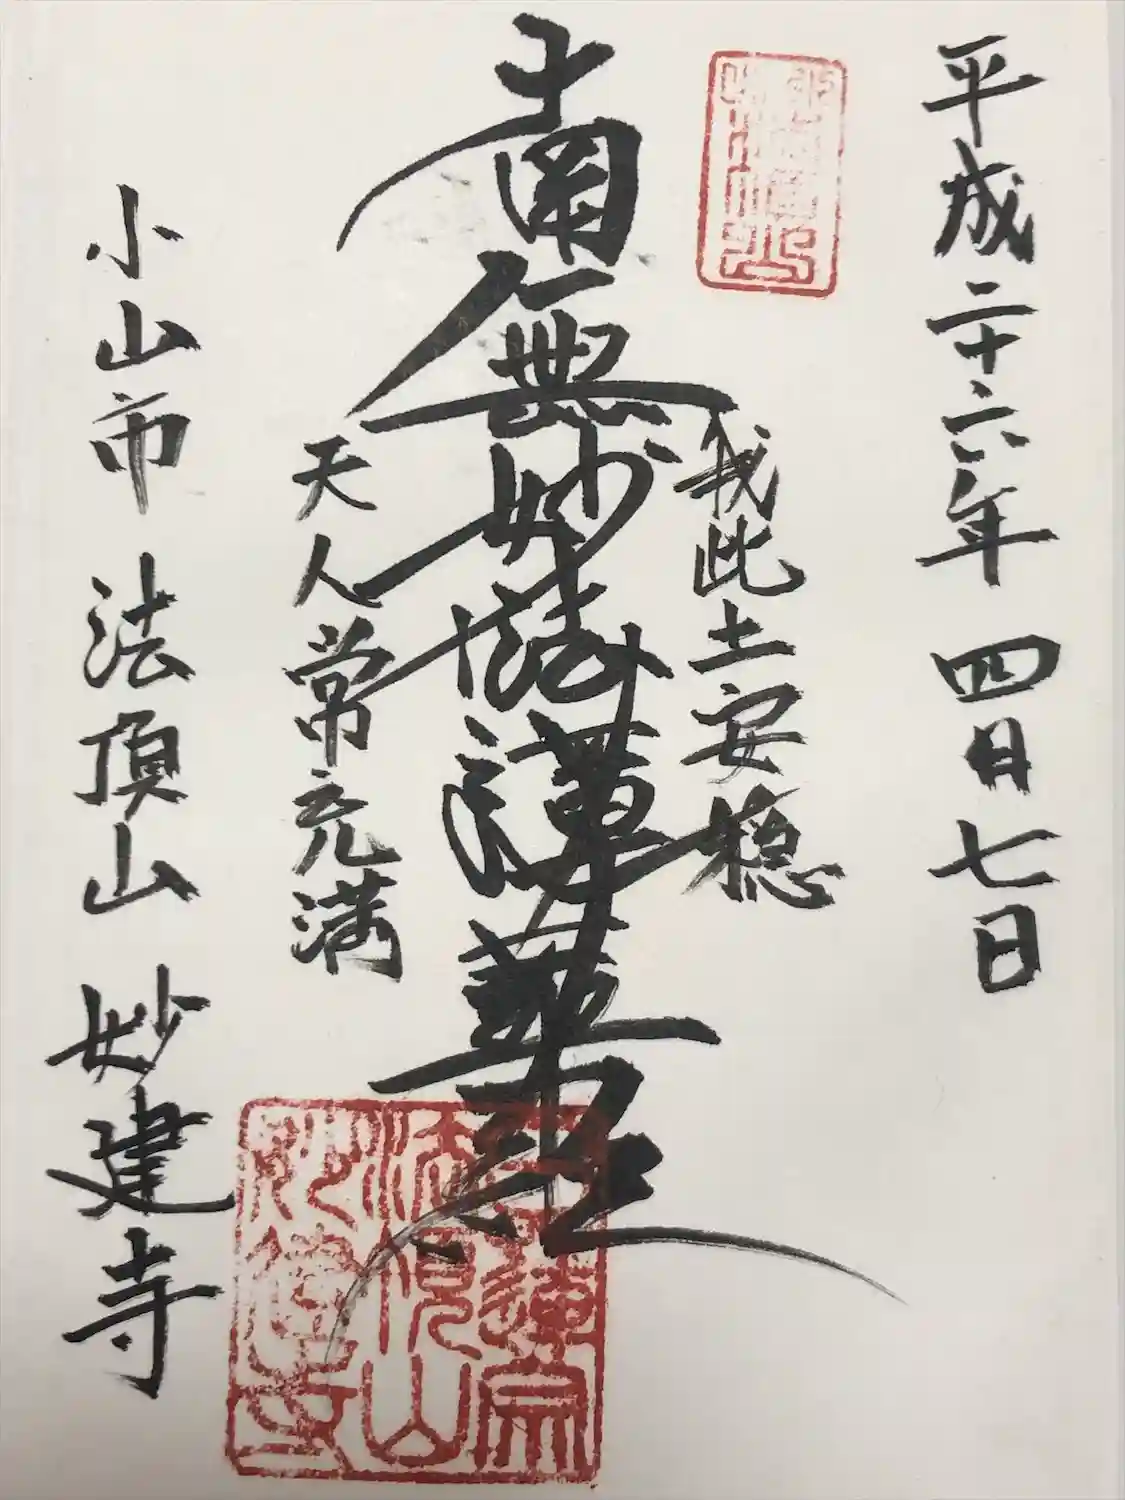 平成二十六年 四月七日
我此土安穏
南無妙法蓮華経
天人常充満
小山市 法頂山 妙建寺
日蓮宗
法頂山
妙建寺